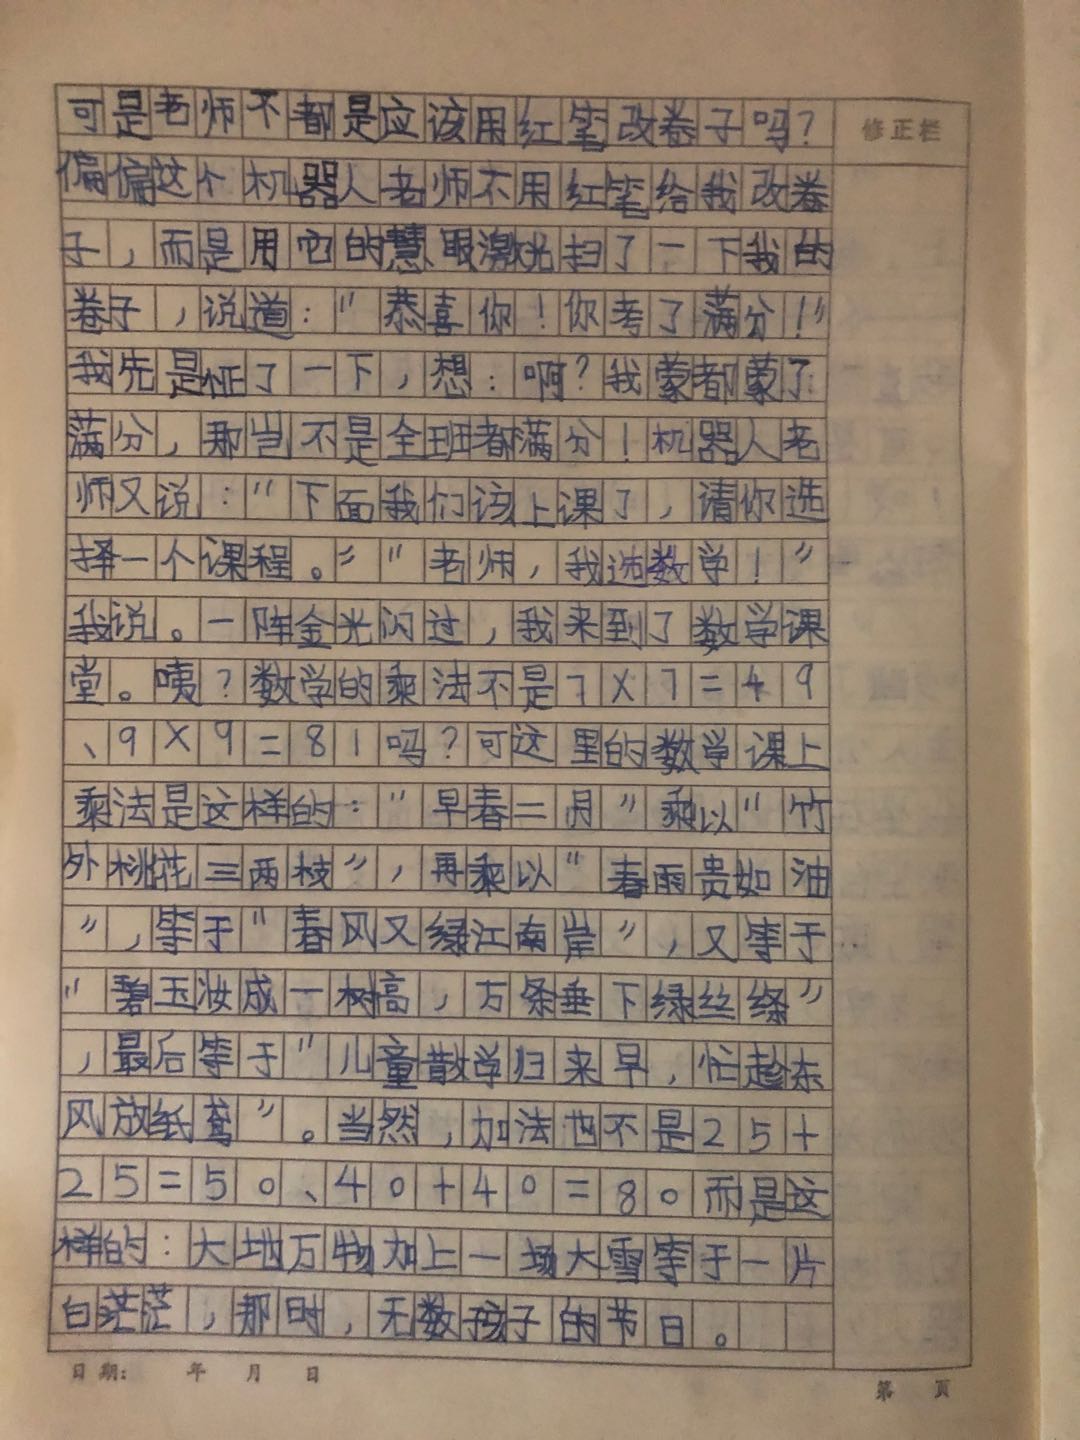 可是老师不都是应该用红笔改卷子吗？
修正栏
偏偏这个机器人老师不用红笔给我改卷
子，而是用它的慧眼激光扫了一下我的
卷子，说道：“恭喜你！你考了满分！”
我先是怔了一下，想：啊？我蒙都蒙了
满分，那岂不是全班都满分！机器人老
师又说：“下面我们该上课了，请你选
择一个课程。”“老师，我选数学！”
我说。一阵金光闪过，我来到了数学课
堂。咦？数学的乘法不是7×7=49
、9×9=81吗？可这里的数学课上
乘法是这样的：“早春二月”乘以“竹
外桃花三两枝”，再乘以“春雨贵如油
”，等于“春风又绿江南岸”，又等于
“碧玉妆成一树高，万条垂下绿丝绦”
，最后等于“儿童散学归来早，忙趁东
风放纸鸢”。当然，加法也不是25+
25=50、40+40=80而是这
样的：大地万物加上一场大雪等于一片
白茫茫，那时，无数孩子的节日。
日期：　年　月　日
第　页